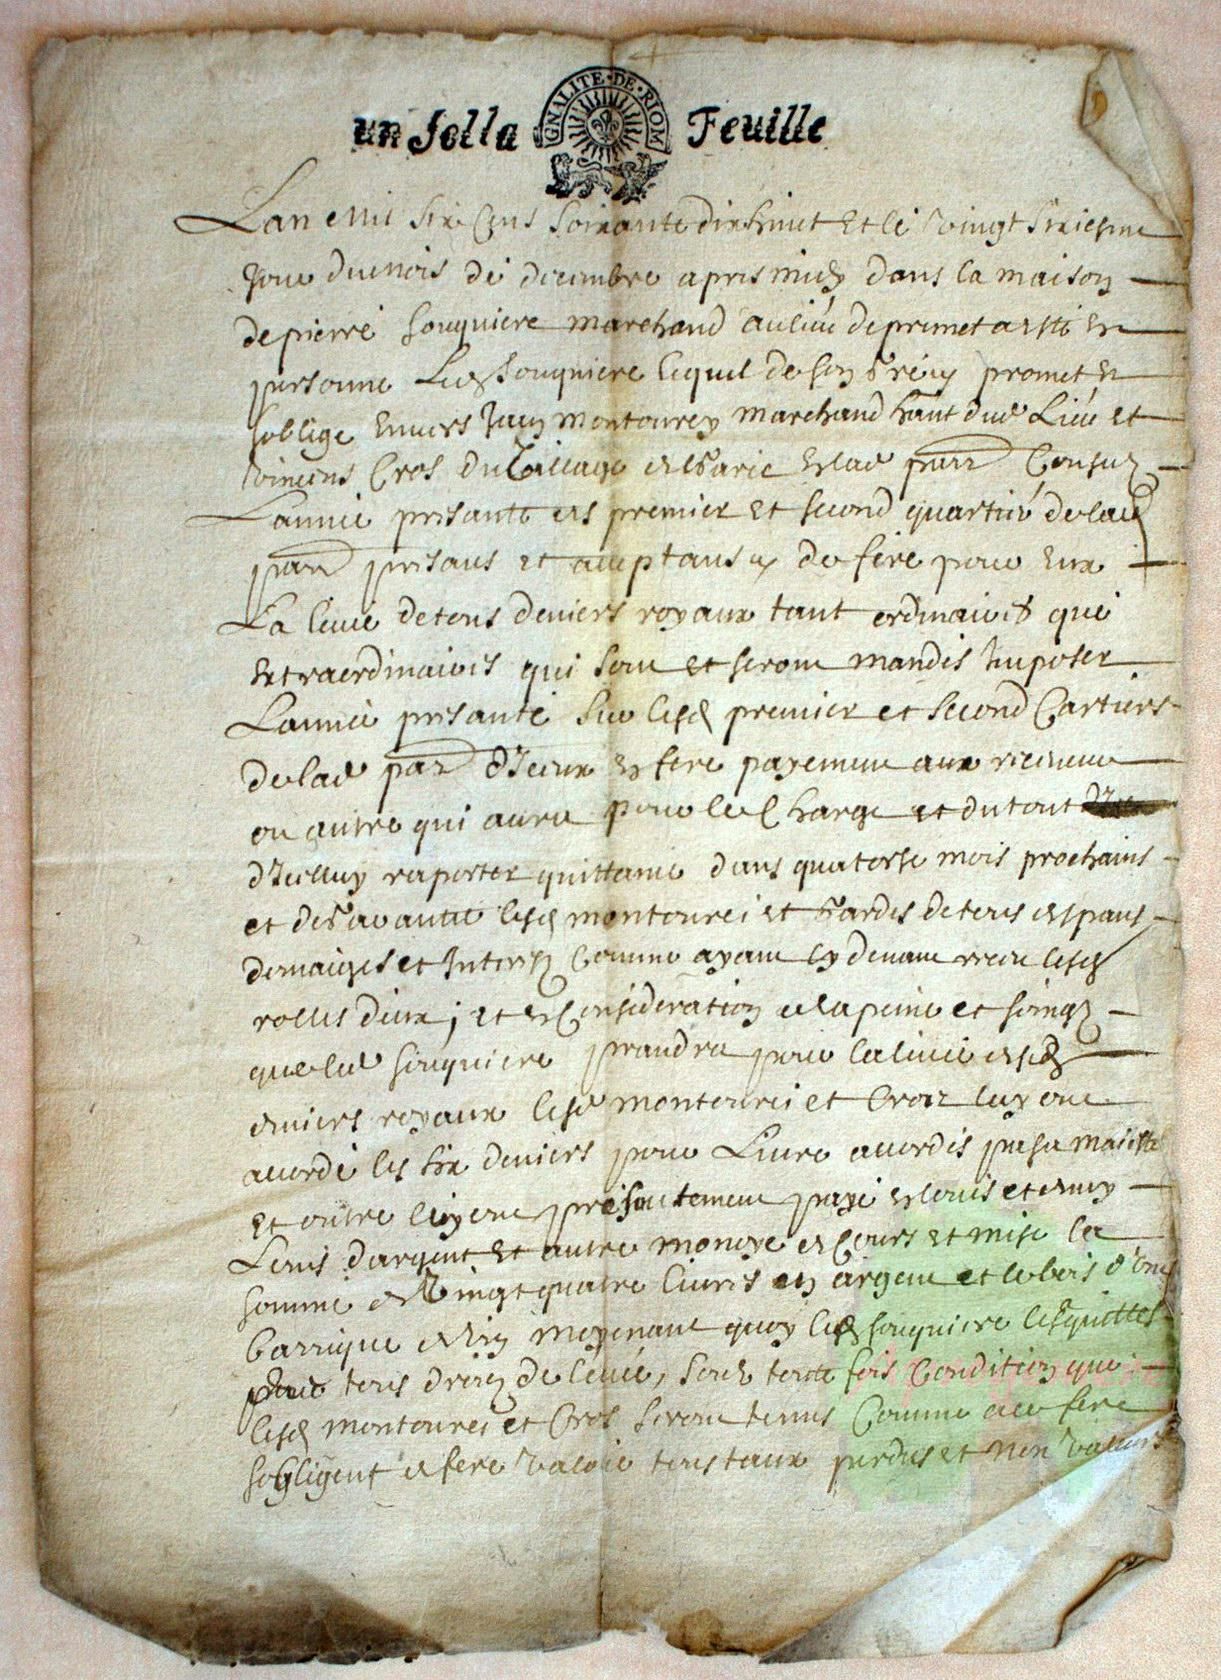 un soll la Feuille
GNALITE · DE · RIOM
Lan mil six cens soixante dix huict et le vingt sixiesme
jour du mois de decembre apres midy dans la maison
de pierre souquiere marchand au lieu de prunet a esté en
personne Led souquiere lequel de son gré promet et
soblige envers Jean montourcy marchand hant dud Lieu et
cros du village en lad parr
Lannee presante des premier et second quartié de lad
parr presans et acceptans de fere pour eux
La levee de tous deniers royaux tant ordinaires que
extraordinaires qui sont et seront mandés imposer
Lannee presante sur lesd premier et second Cartiers
de lad par dIceux en fere payement aux receveur
ou autre qui aura pour ce Charge et du tout
dIcelluy raporter quittance dans quatorse mois prochains
et lesd montourci et de tous despans
domaiges et Interest Comme ayant cy devant receu lesd
rolles deux ; et en Consideration de la peine et soingz
que led souquiere prandra pour la levee desd
deniers royaux lesd montourci et Cros luy ont
acordé les six deniers pour Livre acordés par sa maieste
et outre luy ont presentement payé en louis et demy
Louis dargent et autre monoye de Cours et mise la
somme de vingt quatre livres en argent et le bois d'une
barrique de vin moyenant quoy led souquiere les quittes
de tous droitz de levee, soubz toute fois Condition que
lesd montourci et Cros seront tenus Comme a ce fere
sobligent de fere valoir tous taux perdus et non valeurs